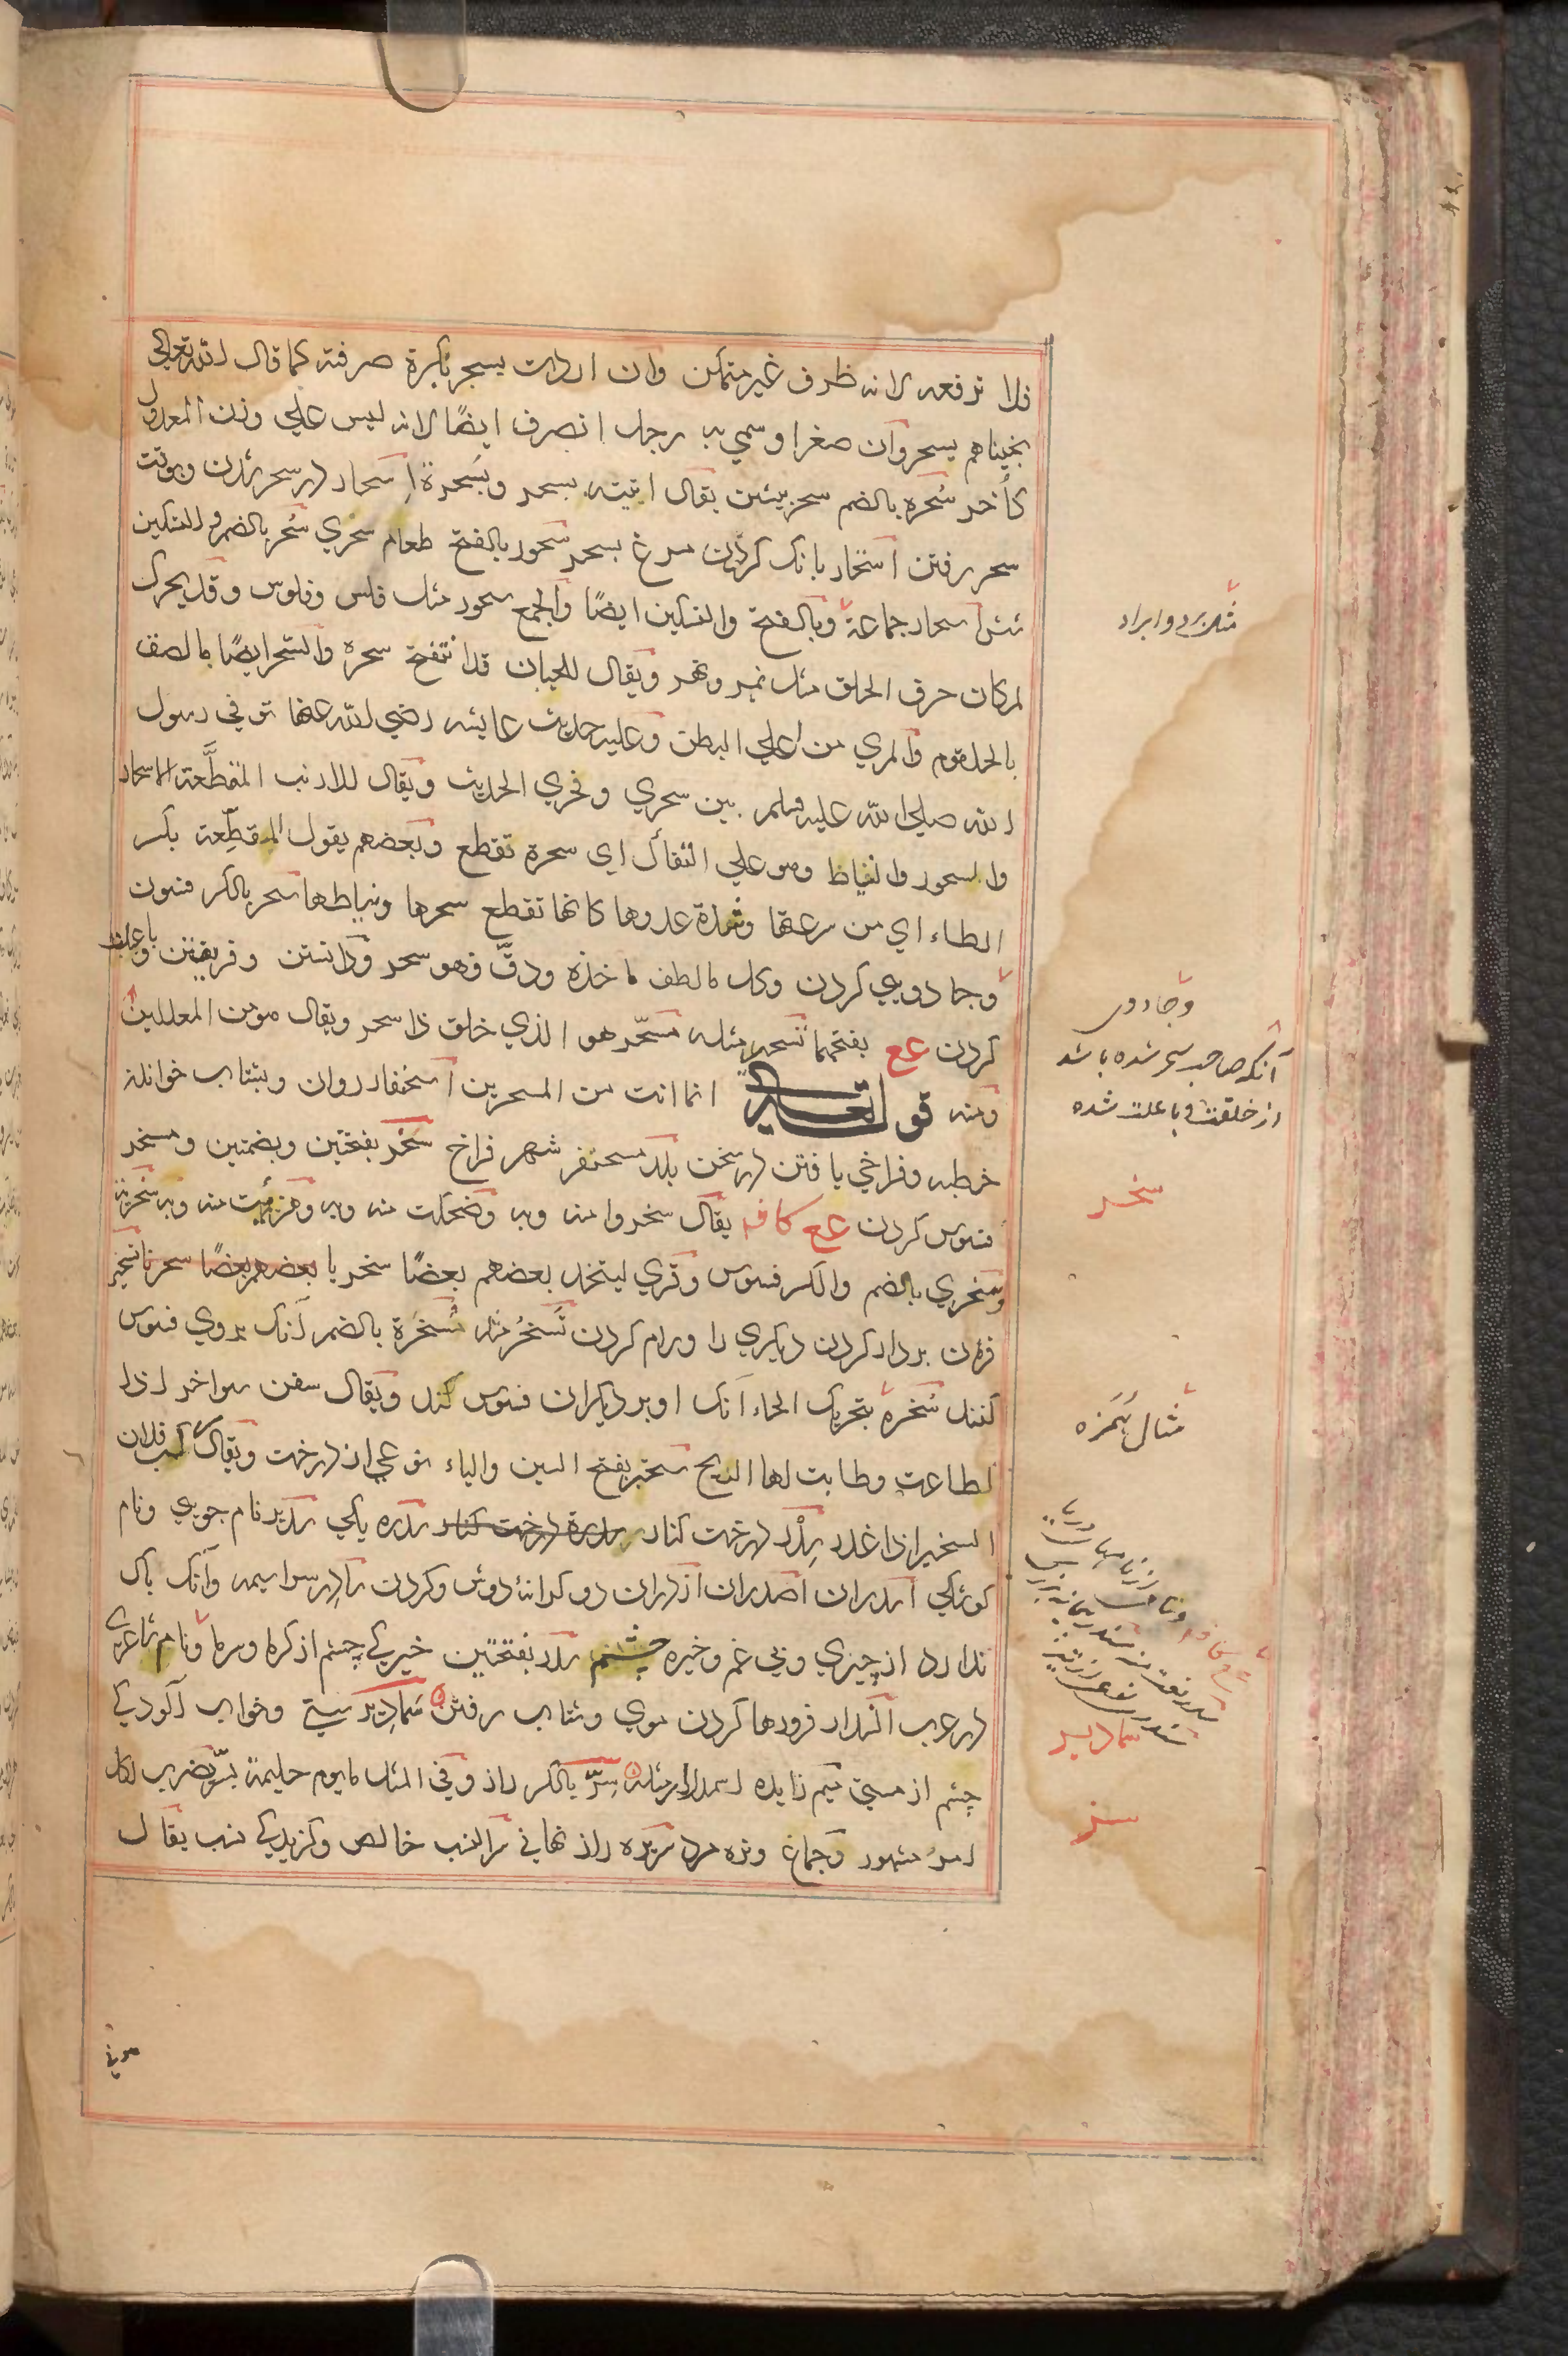 فلا ترفعه لانه ظرف غیر متمکن وان اردت بسحر نکرة صرفته کما قال الله تعالی
نجیناهم بسحر وان صغرا وسمی به رجل انصرف ایضًا لانه لیس علی وزن المعدول
کأخر سُحره بالضم سحر پیشین یقال اتیته بسحر وبسُحرة اِسحار در سحر شدن وبوقت
سحر رفتن استحار بانک کردن مرغ بسحر سَحور بالفتح طعام سحری سُحر بالضم والتسکین
شش اسحار جماعة وبالفتح والتسکین ایضًا والجمع سحور مثل فلس وفلوس وقد یحرک
لمکان حرف الحلق مثل نهر ونهر ویقال للجبان قد انتفخ سحره والسحر ایضًا مالصق
بالحلقوم والمری من اعلی البطن وعلیه حدیث عایشه رضی الله عنها توفی رسول
الله صلی الله علیه وسلم بین سحری ونحری الحدیث ویقال للارنب المقطَّعة الاسحار
والسحور والنیاط وهو علی التفأل ای سحره تقطع وبعضهم یقول المقطِّعة بکسر
الطاء ای من سرعتها وشدة عدوها کانها تقطع سحرها ونیاطها سحر بالکسر فسون
وجادویی کردن وکل مالطف ماخذه ودقّ فهو سحر ودانستن وفریفتن وباعلت
کردن عع بفتحهما تسحیر مثله مسحّر هو الذی خلق ذا سحر ویقال هو من المعللین
ومنه قوله تعالی انما انت من المسحرین اسحنفار روان وبشتاب خواندن
خطبه وفراخی یافتن در سخن بلد مسحنفر شهر فراخ سخر بفتحتین وبضمتین ومسخر
فسوس کردن عع کافه یقال سخروا منه وبه وضحکت منه وبه وهزئت منه وبه سخریة
وسخری بالضم والکسر فسوس وقری لیتخذ بعضهم بعضًا سخریا بعضهم بعضًا سخریا تسخیر
فرمان بردار کردن دیکری را ورام کردن تَسخُر مثله سُخرَة بالضم آنک بروی فسوس
کنند سُخَره بتحریک الخاء آنک او بر دیکران فسوس کند ویقال سفن سواخر اذا
اطاعت وطابت لها الریح سخبر بفتح السین والباء نوعی از درخت ویقال رکب فلان
السخبر اذا غدر سِدْر درخت کنار سدرة درخت کنار سدره یکی سدیر نام جویی ونام
کوشکی اسدران اصدران ازدران دو کرانۀ دوش وکردن سادِر سراسیمه وآنک باک
ندارد از چیزی وبی غم وخیره چشم سدر بفتحتین خیرکی چشم از کرما وسرما ونام شاعری
در عرب انسدار فرودها کردن موی وشتاب رفتن سَمادیر سستی وخواب آلودکی
چشم از مستی میم زایده اسمدرار مثله سِرّ بالکسر راز وفی المثل مایوم حلیمة بسرّ یضرب لکل
امر مشهور وجماع ونره مرد سریره راز نهانی سر النسب خالص وکزیدکی نسب یقال
مثل بری وابراد
وجادوی
آنکه صاحب سحر شده باشد
از خلقت وبا علت شده
سخر
مثال هُمَزه
سمادیر
سر